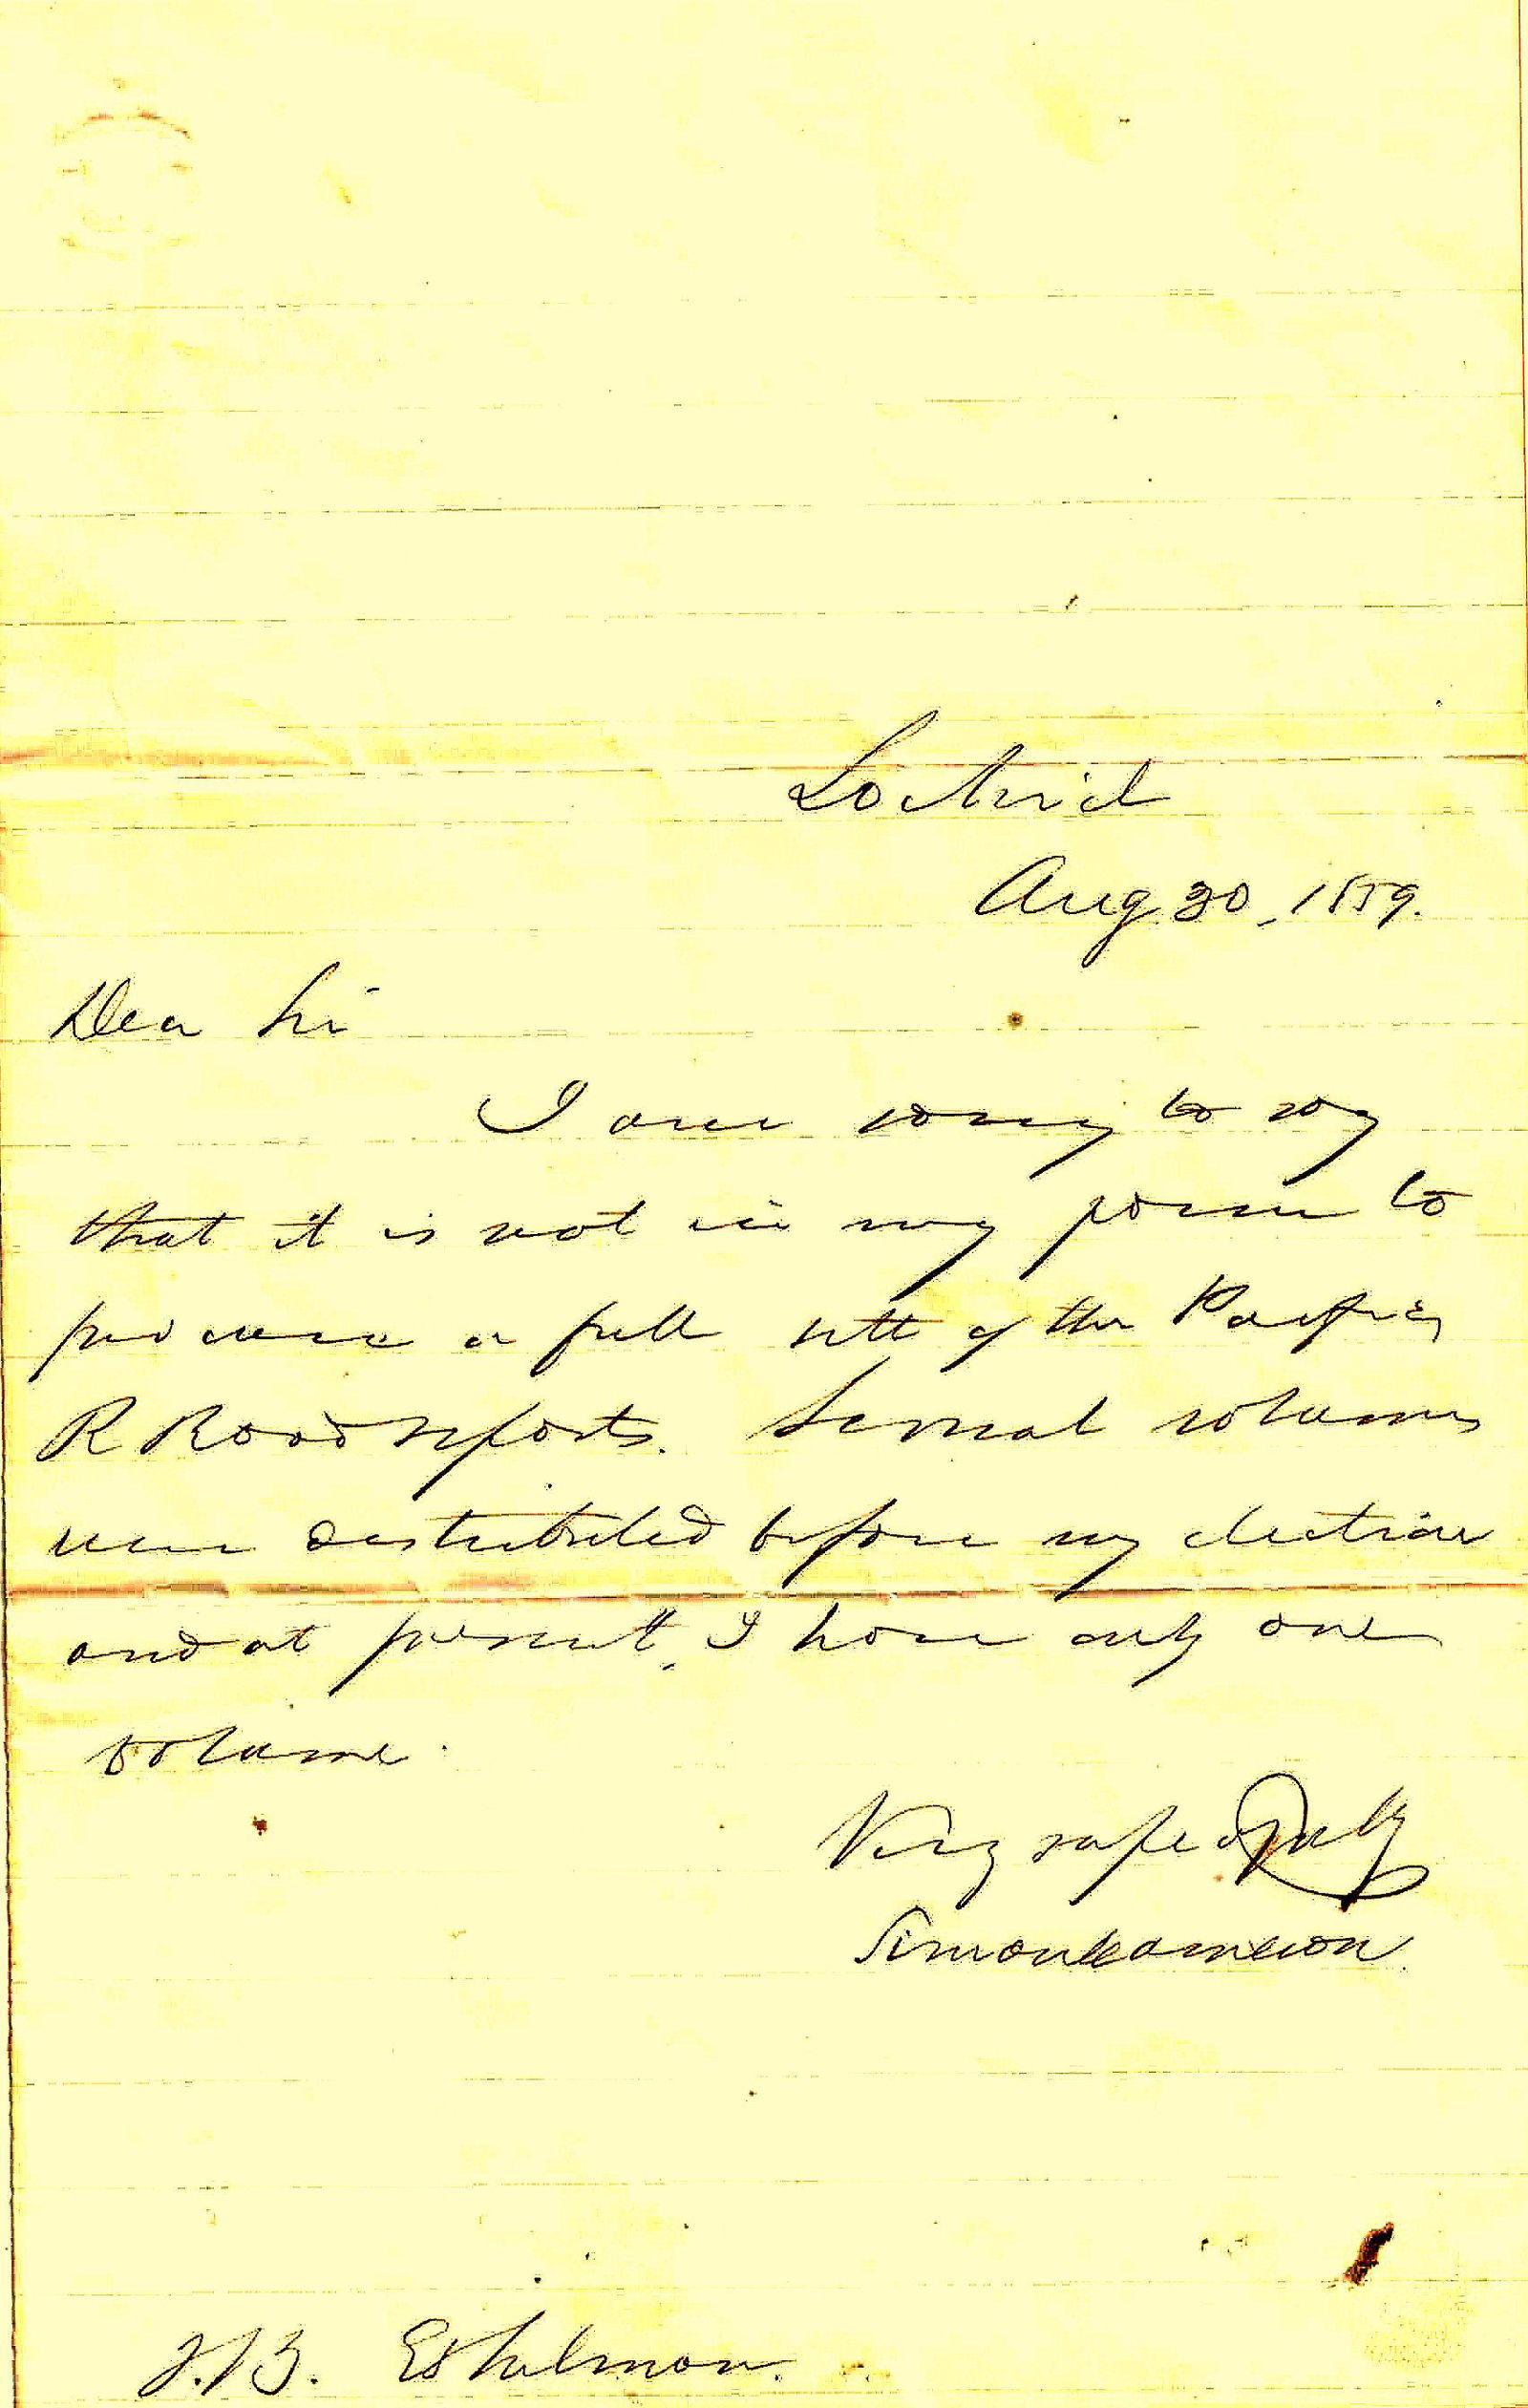 Lochiel
Aug 30, 1859.
Dear Sir
I am sorry to say
that it is not in my power to
procure a full sett of the Pacific
R Road reports. Several volumes
were distributed before my election
and at present, I have only one
volume.
Very respectfully
Simon Cameron
J.B. Eshelman.